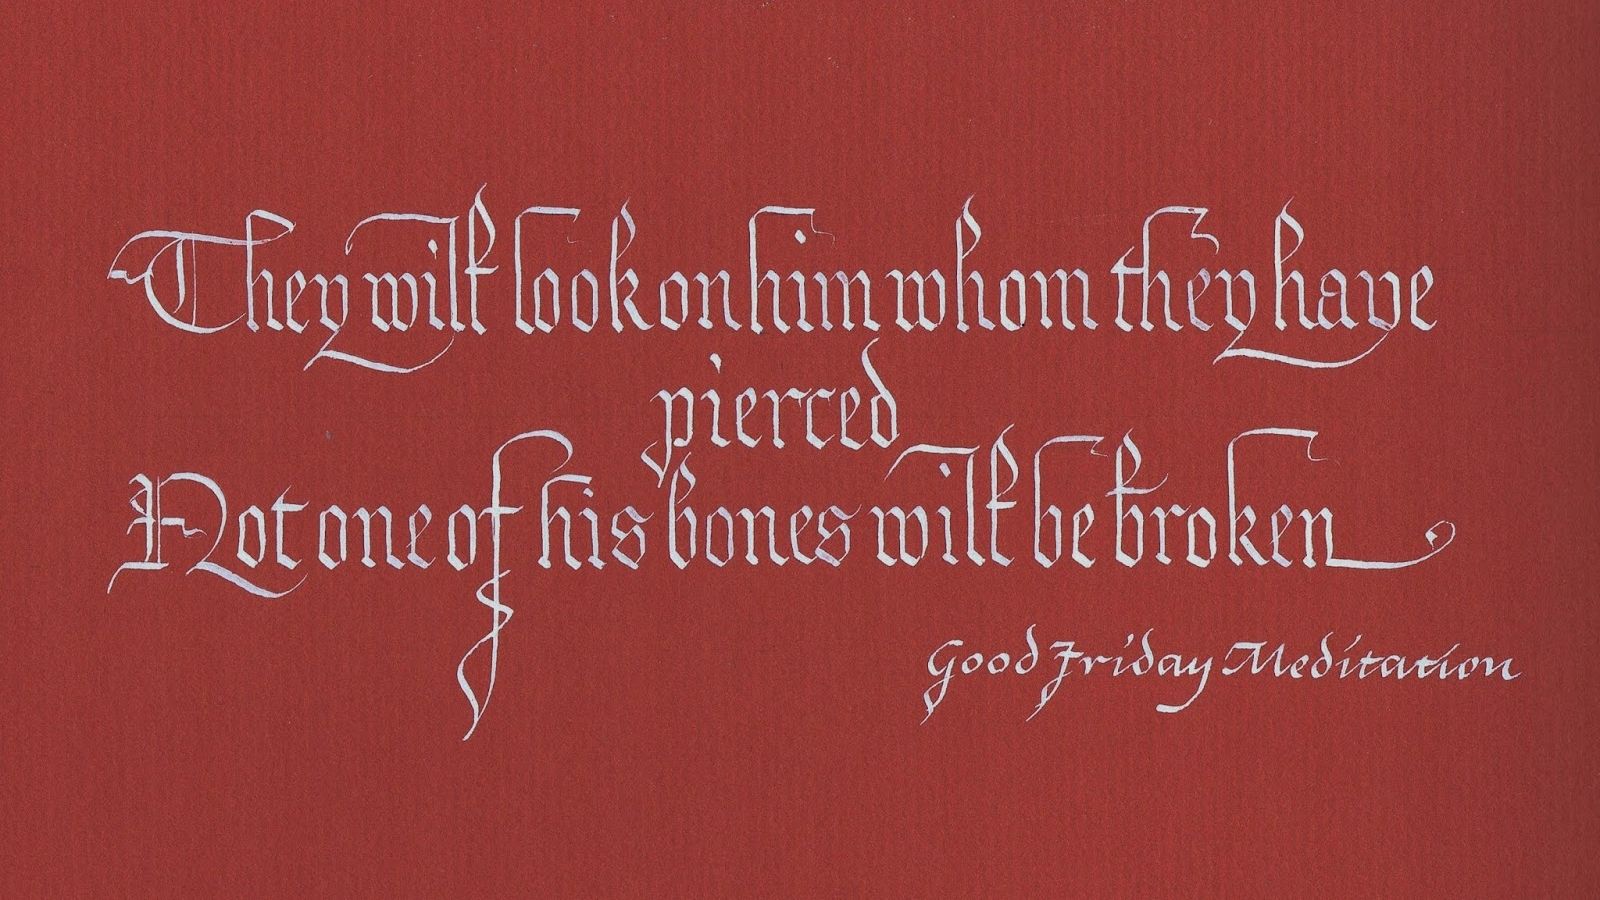 They will look on him whom they have
pierced
Not one of his bones will be broken
Good Friday Meditation